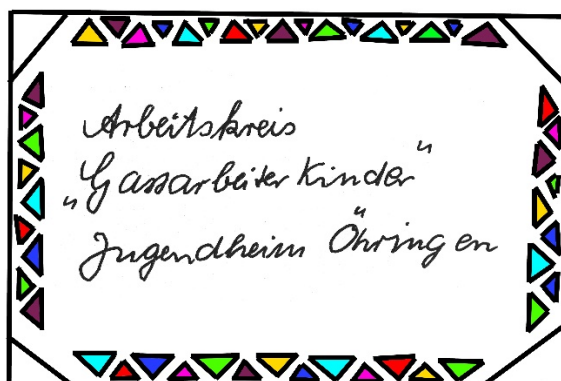 Arbeitskreis
„Gastarbeiter Kinder"
Jugendheim Öhringen